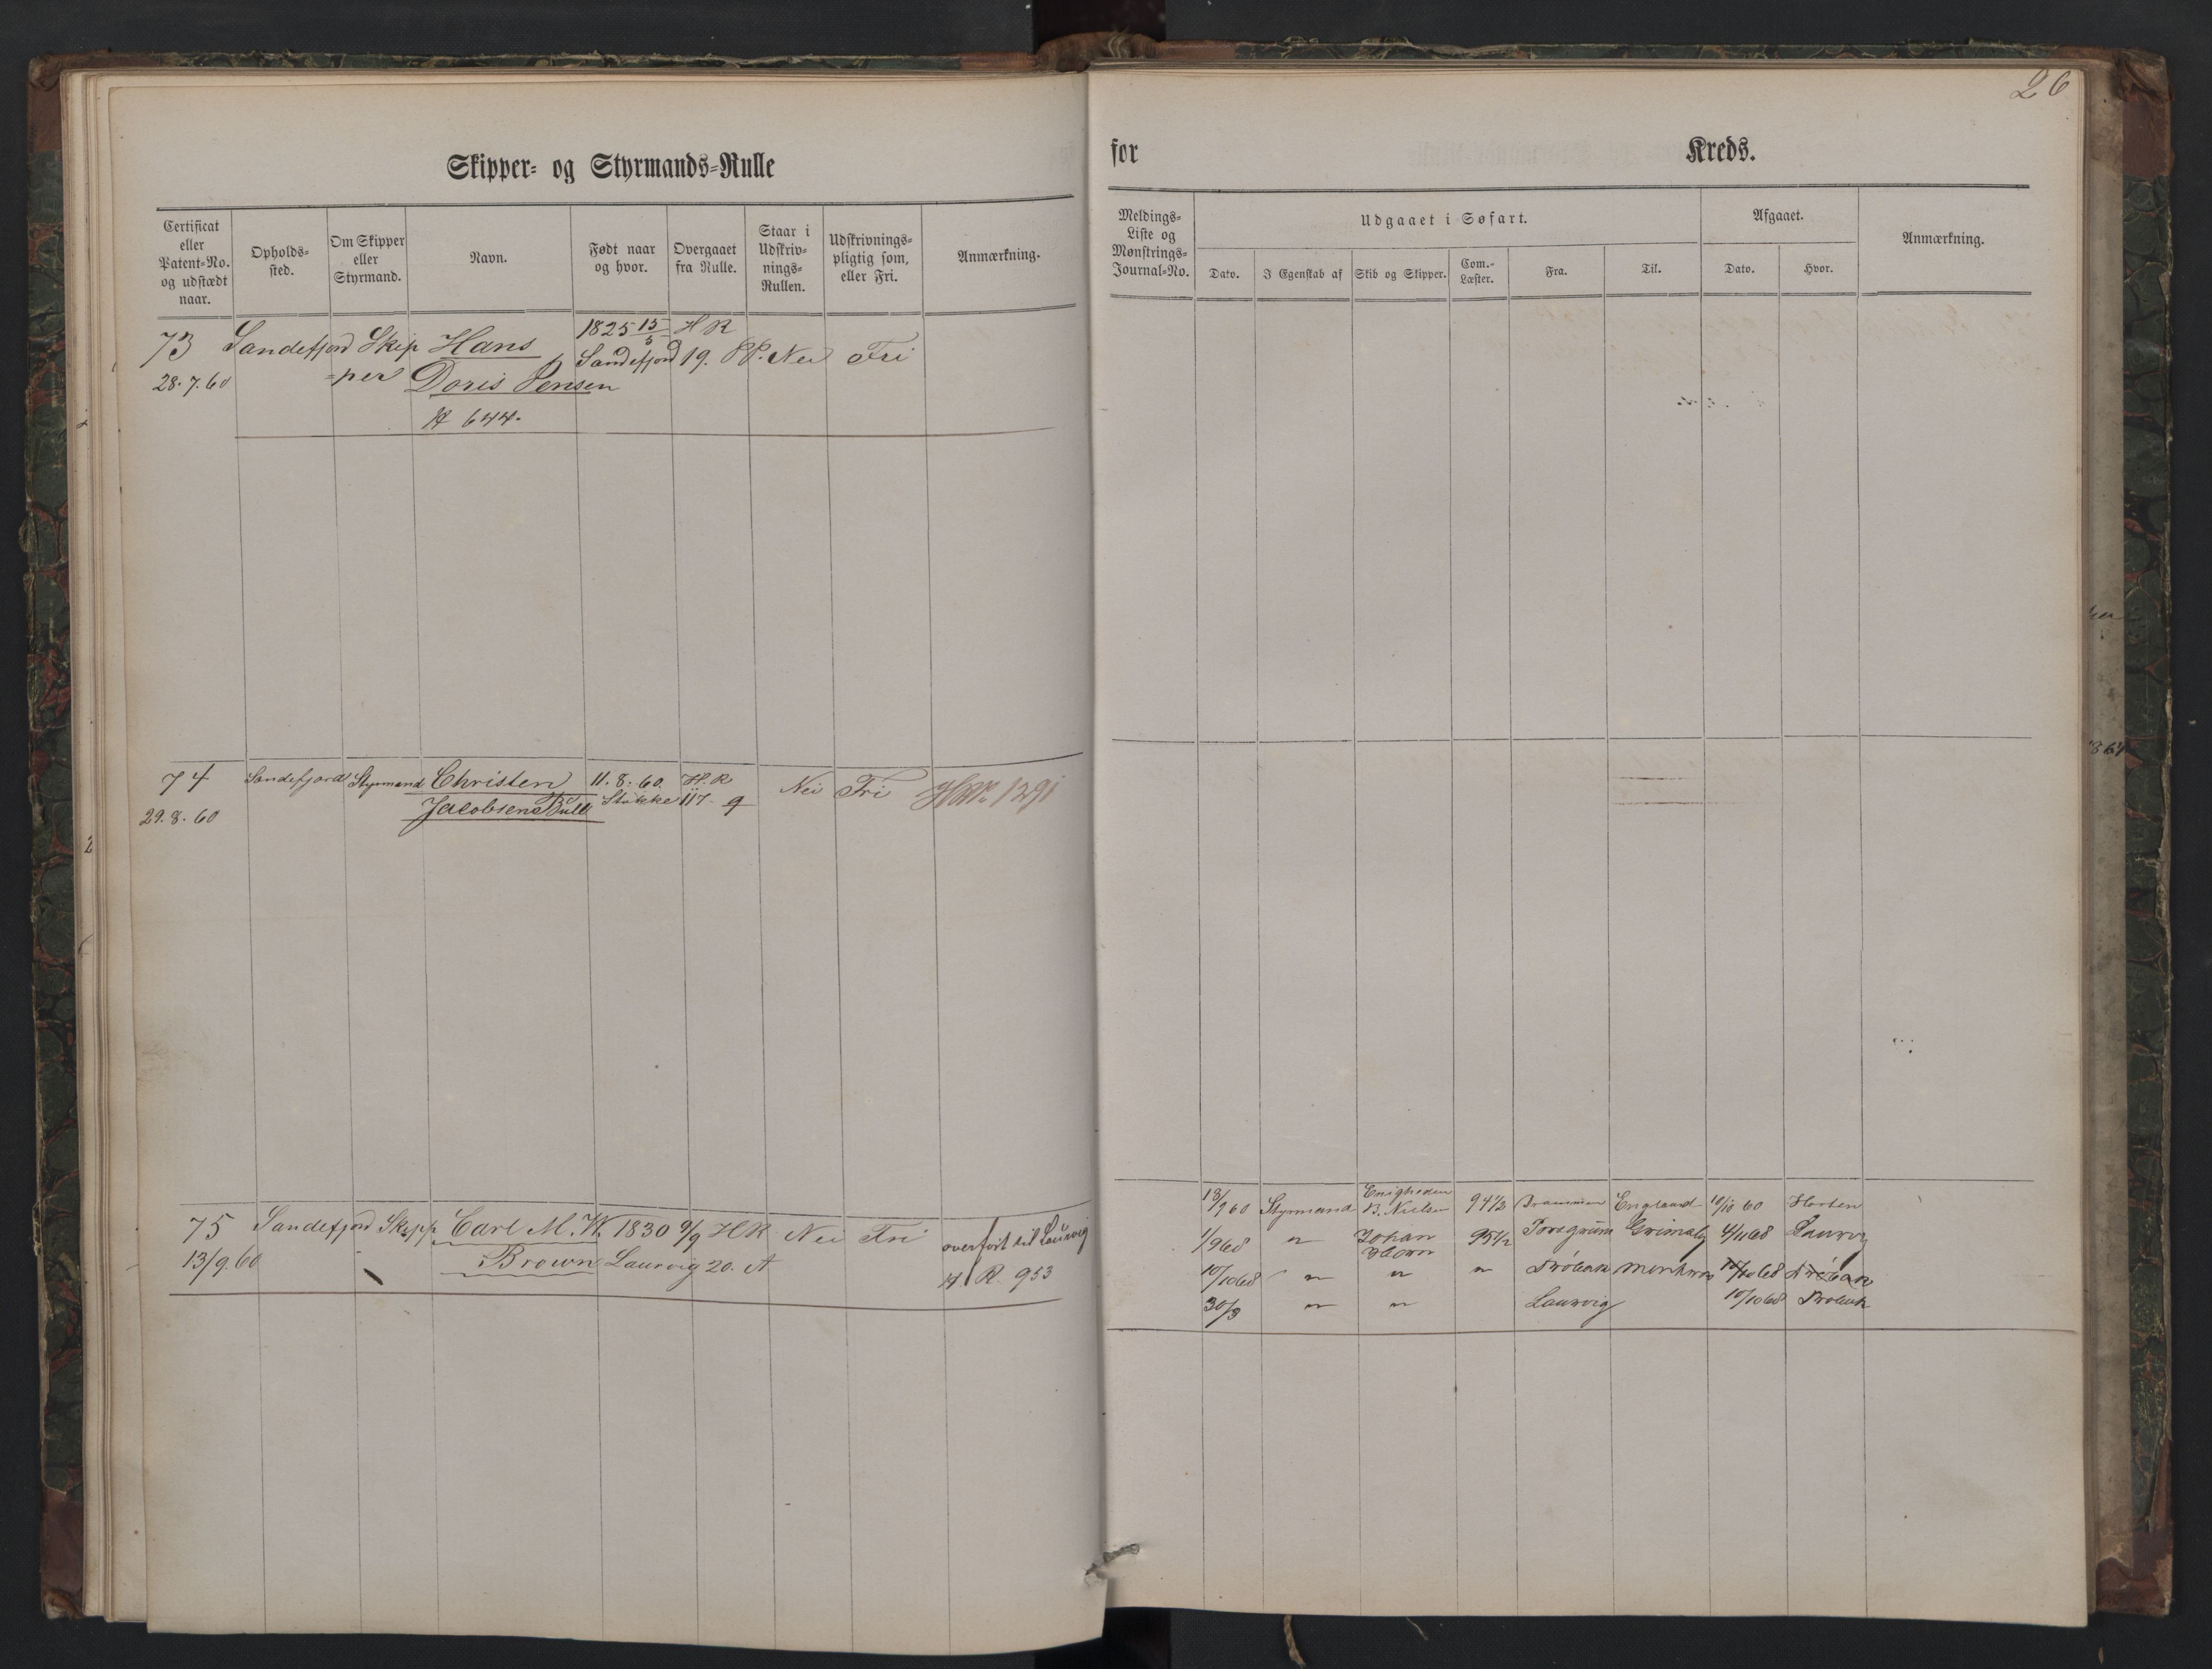 26
Skipper- og Styrmands-Rulle
for Kreds.
Certificat eller Patent-No. og udstædt naar.
Opholds-sted.
Om Skipper eller Styrmand.
Navn.
Født naar og hvor.
Overgaaet fra Rulle.
Staar i Udskriv-nings-Rullen.
Udskrivnings-pligtig som, eller Fri.
Anmærkning.
Meldings-Liste og Mønstrings-Journal-No.
Udgaaet i Søfart.
Dato. I Egenskab af Skib og Skipper. Com.-Læster. Fra. Til.
Afgaaet.
Dato. Hvor.
Anmærkning.
73 Sandefjord Skip Hans 1825 15/5 HR
28.7.60 -per Doris Jensen Sandefjord 19. Nei Fri
644.
74 Sandefjord Styrmand Christen 11.8.60. H.R Nei Fri 1291
29.8.60 Jacobsen Stokke 117. 9
75 Sandefjord Skipp Carl M. W. 1830 9/9 HR Nei Fri overført til Laurvig
13/9.60 Brown Laurvig 20. A R. 953
18/9 60 Styrmand Enigheden B. Nielsen 94 1/2 Drammen England 10/10 60 Horten
1/9 68 " Johan 95 1/2 Porsgrund Grimsby 4/11 68 Laurvig
10/10 68 " " " Drøbak 10/10 68 Drøbak
30/8 " " Laurvig 10/10 68 Drøbak